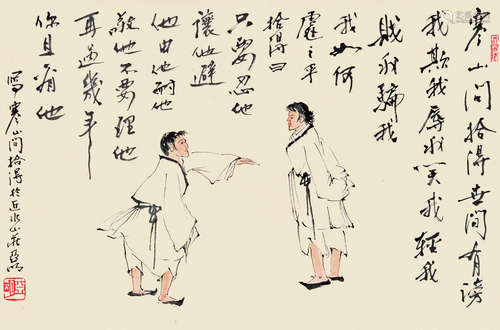 寒山问拾得世间有谤
我欺我辱我笑我輕我
贱我骗我
我如何
處之乎
拾得曰
只要忍他
讓他避
他由他耐他
敬他不要理他
再過幾年
你且看他
寫寒山问拾得於近水山莊亞明